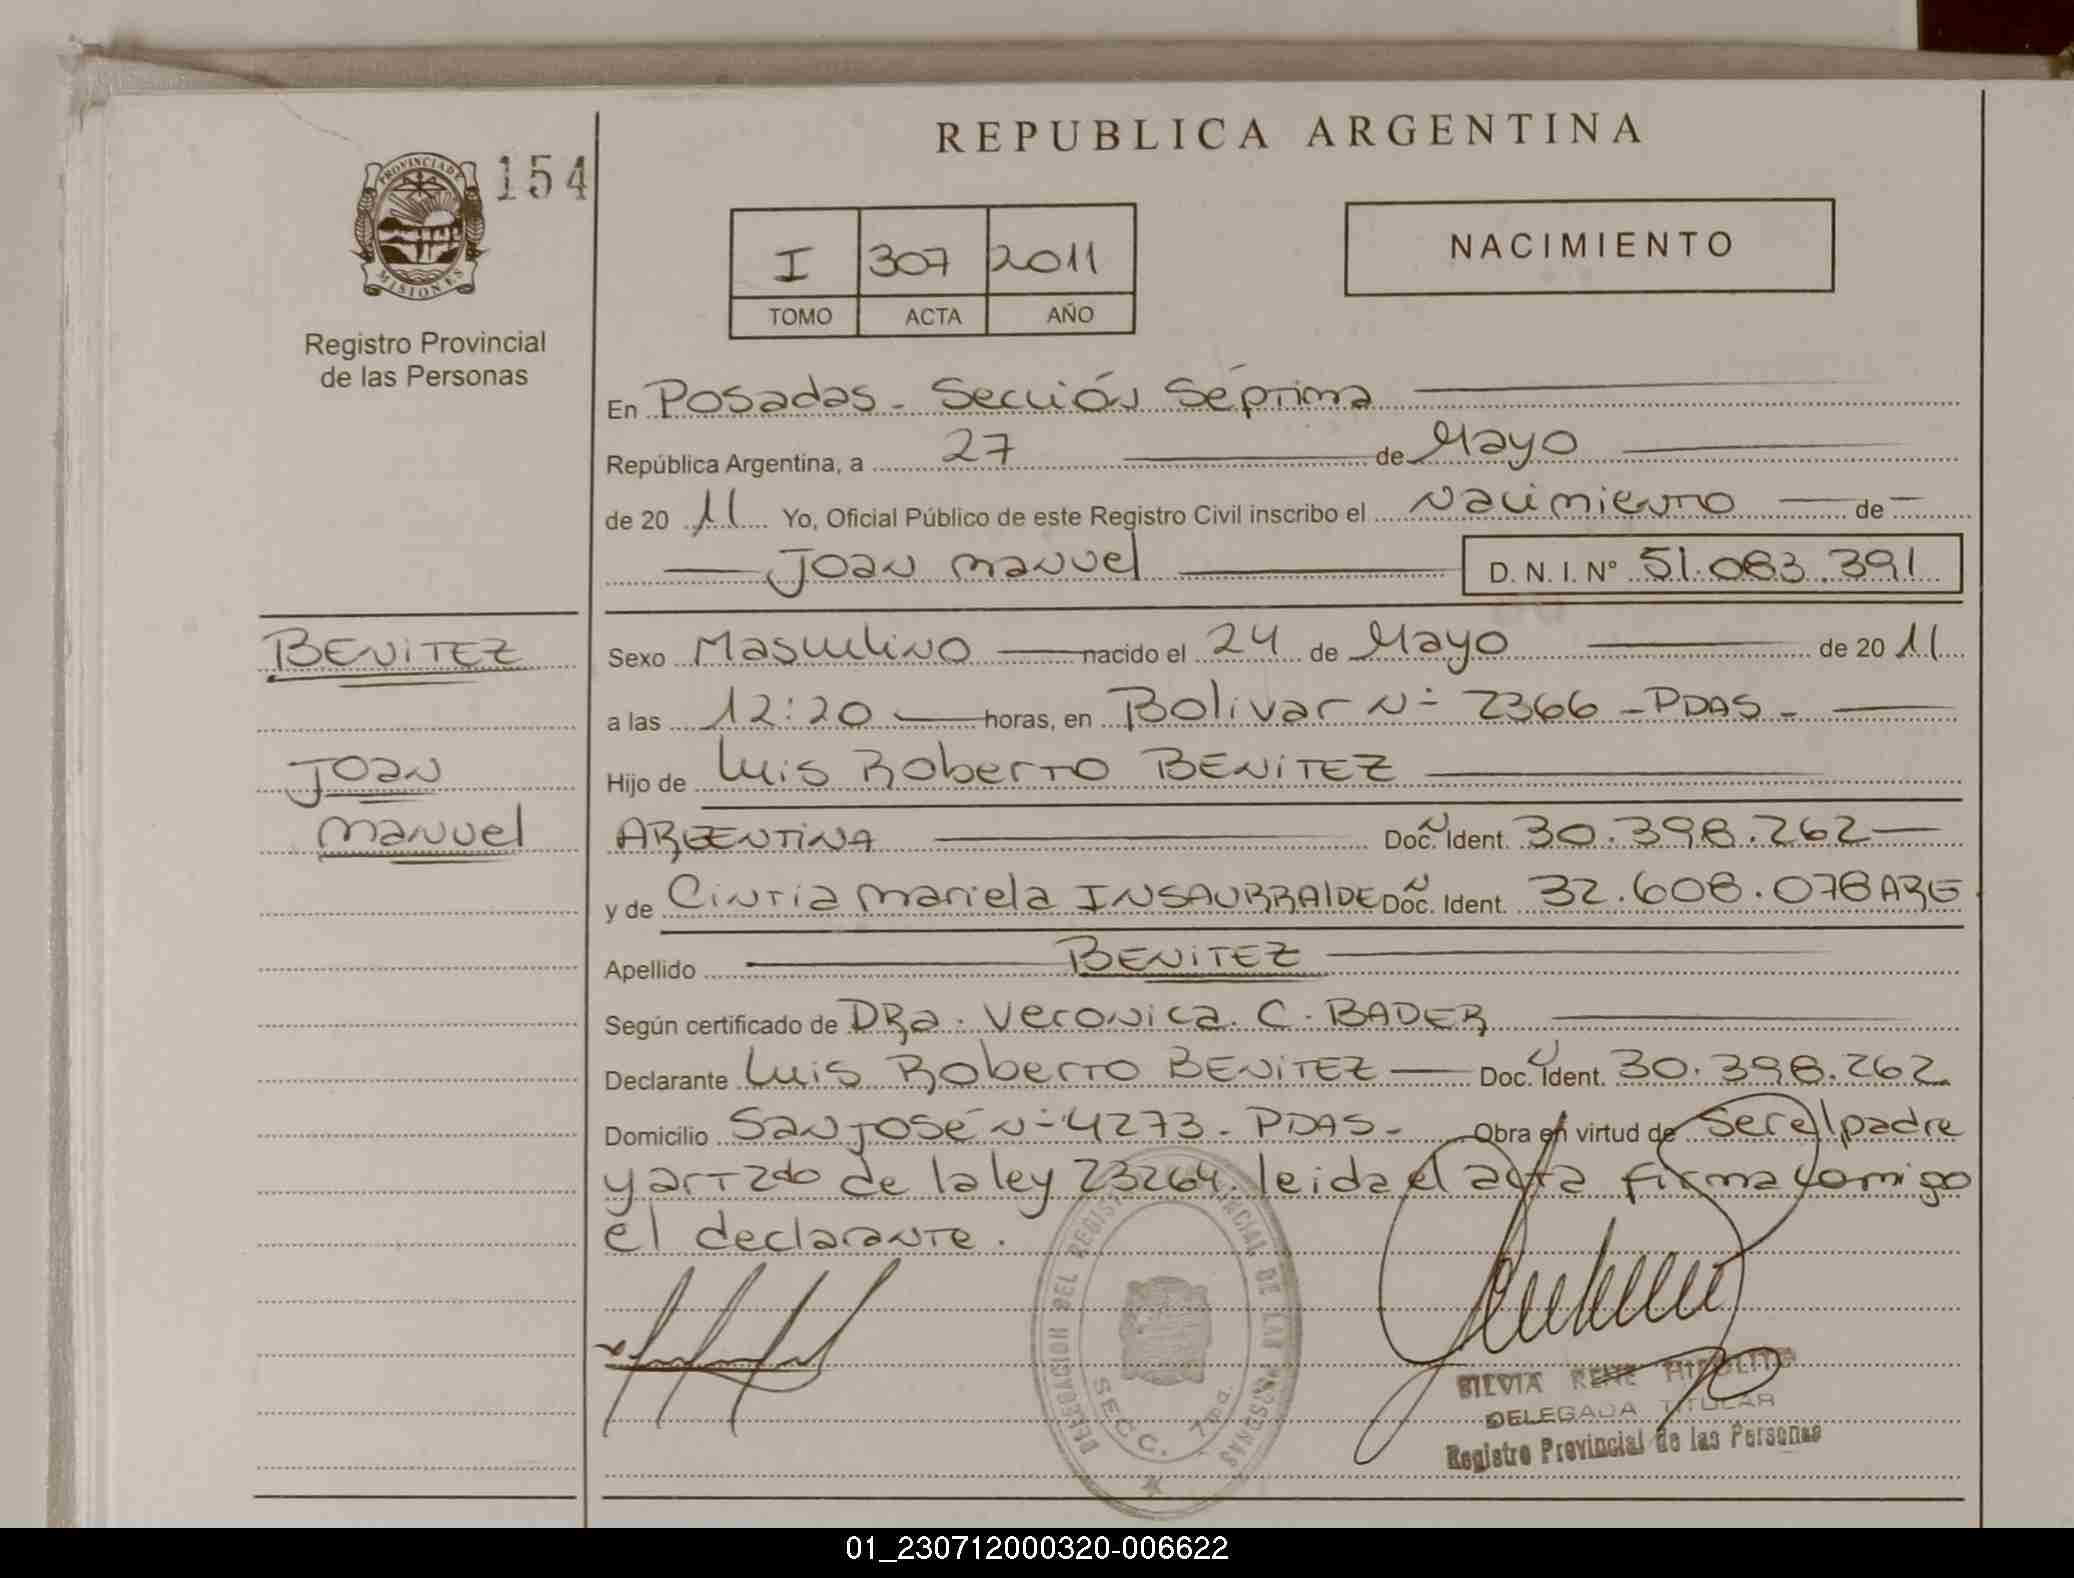 REPUBLICA ARGENTINA
PROVINCIA DE
MISIONES
154
Registro Provincial
de las Personas
I 307 2011
TOMO ACTA AÑO
NACIMIENTO
En Posadas - Sección Séptima
República Argentina, a 27 de Mayo
de 20 11 Yo, Oficial Público de este Registro Civil inscribo el Nacimiento de
Joan Manuel D. N. I. Nº 51.083.391
BENITEZ
Joan
Manuel
Sexo Masculino nacido el 24 de Mayo de 20 11
a las 12:20 horas, en Bolivar Nº 2366 - PDAS -
Hijo de Luis Roberto BENITEZ
ARGENTINA Doc. Ident. 30.398.262
y de Cintia Mariela INSAURRALDE Doc. Ident. 32.608.078 ARG
Apellido BENITEZ
Según certificado de DRa. Veronica. C. BADER
Declarante Luis Roberto BENITEZ Doc. Ident. 30.398.262
Domicilio San José Nº 4273 - PDAS - Obra en virtud de ser el padre
y art 2do de la ley 23264. leida el acta firma comigo
el declarante.
DELEGACION DEL REGISTRO PROVINCIAL DE LAS PERSONAS
SECC. 7ma.
SILVIA RENE HIPOLITO
DELEGADA TITULAR
Registro Provincial de las Personas
01_230712000320-006622